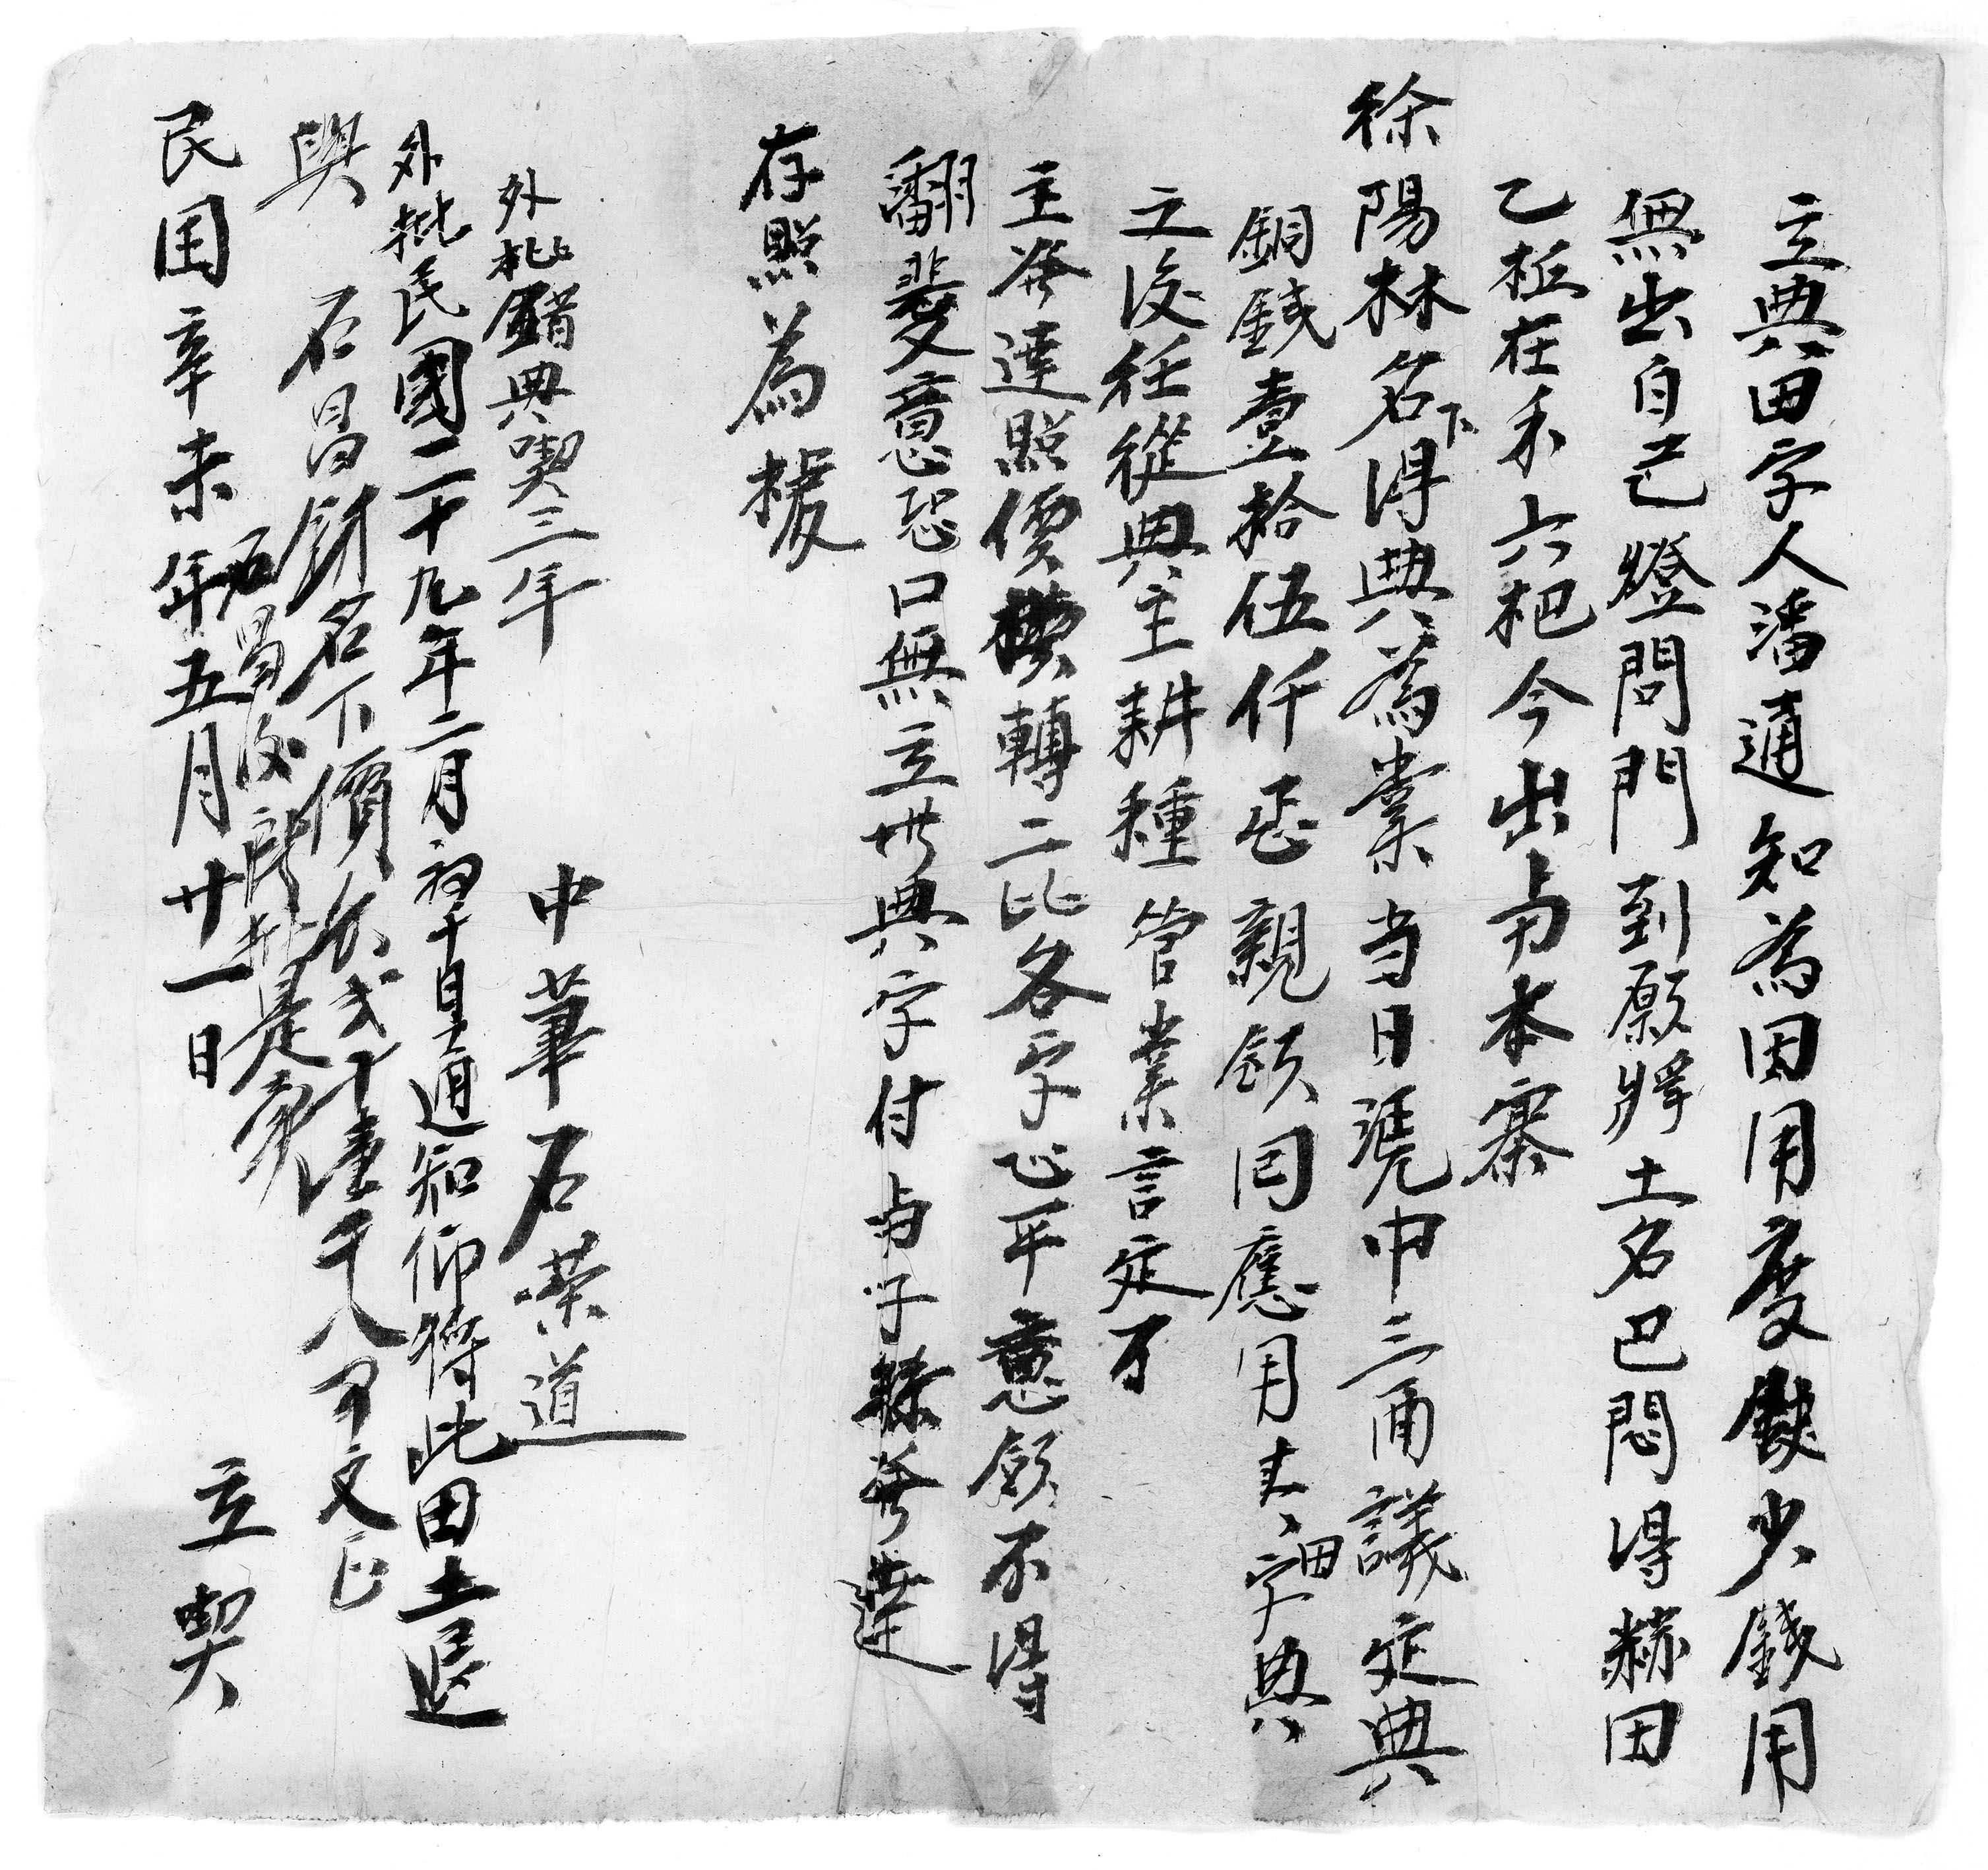 立典田字人潘通知為因用度缺少錢用
無出自己燈問門到愿將土名巴悶得赫田
乙坵在禾六把今出与本寨
徐陽林名下得典為業当日凴中三面議定典
銅錢壹拾伍仟正親領囘應用其田字典
立後任從典主耕種管業言定不
主發達照價贖轉二比各字心平意願不得
翻變意恐口無立此典字付与子孫發達
存照為據
外批醋典喫三年
中筆石荣道
外批民國二十九年二月初十日星通知仰將此田土退
與 石昌財名下價錢弍十壹千八百文正
石昌 批是實
民国辛未年五月廿一日 立喫